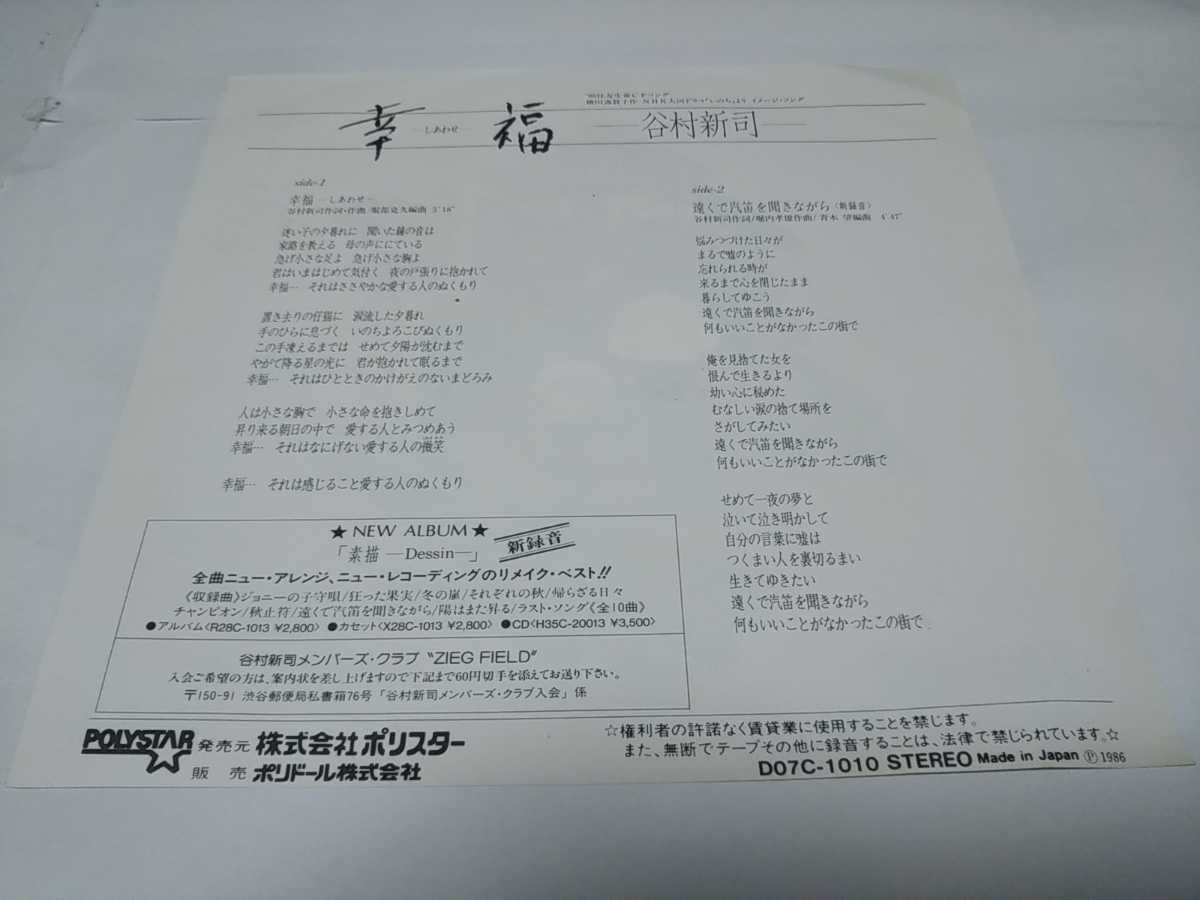 橋田壽賀子作 NHK大河ドラマ「いのち」より イメージ・ソング
幸 —しあわせ— 福 —谷村新司—
side-1
幸福 —しあわせ—
谷村新司作詞・作曲/服部克久編曲 5'18"
迷い子の夕暮れに 聞いた鐘の音は
家路を教える 母の声ににている
急げ小さな足よ 急げ小さな胸よ
君はいまはじめて気付く 夜の戸張りに抱かれて
幸福… それはささやかな愛する人のぬくもり
置き去りの仔猫に 涙流した夕暮れ
手のひらに息づく いのちよろこびぬくもり
この手凍えるまでは せめて夕陽が沈むまで
やがて降る星の光に 君が抱かれて眠るまで
幸福… それはひとときのかけがえのないまどろみ
人は小さな胸で 小さな命を抱きしめて
昇り来る朝日の中で 愛する人とみつめあう
幸福… それはなにげない愛する人の微笑
幸福… それは感じること愛する人のぬくもり
side-2
遠くで汽笛を聞きながら〈新録音〉
谷村新司作詞/堀内孝雄作曲/青木 望編曲 4'47"
悩みつづけた日々が
まるで嘘のように
忘れられる時が
来るまで心を閉じたまま
暮らしてゆこう
遠くで汽笛を聞きながら
何もいいことがなかったこの街で
俺を見捨てた女を
恨んで生きるより
幼い心に秘めた
むなしい涙の捨て場所を
さがしてみたい
遠くで汽笛を聞きながら
何もいいことがなかったこの街で
せめて一夜の夢と
泣いて泣き明かして
自分の言葉に嘘は
つくまい人を裏切るまい
生きてゆきたい
遠くで汽笛を聞きながら
何もいいことがなかったこの街で
★ NEW ALBUM ★
「素描 —Dessin—」 新録音
全曲ニュー・アレンジ、ニュー・レコーディングのリメイク・ベスト!!
《収録曲》ジョニーの子守唄/狂った果実/冬の嵐/それぞれの秋/帰らざる日々
チャンピオン/秋止符/遠くで汽笛を聞きながら/陽はまた昇る/ラスト・ソング《全10曲》
●アルバム〈R28C-1013 ¥2,800〉 ●カセット〈X28C-1013 ¥2,800〉 ●CD〈H35C-20013 ¥3,500〉
谷村新司メンバーズ・クラブ "ZIEG FIELD"
入会ご希望の方は、案内状を差し上げますので下記まで60円切手を添えてお送り下さい。
〒150-91 渋谷郵便局私書箱76号「谷村新司メンバーズ・クラブ入会」係
POLYSTAR 発売元 株式会社ポリスター
販 売 ポリドール株式会社
☆権利者の許諾なく賃貸業に使用することを禁じます。
また、無断でテープその他に録音することは、法律で禁じられています。☆
D07C-1010 STEREO Made in Japan Ⓟ1986